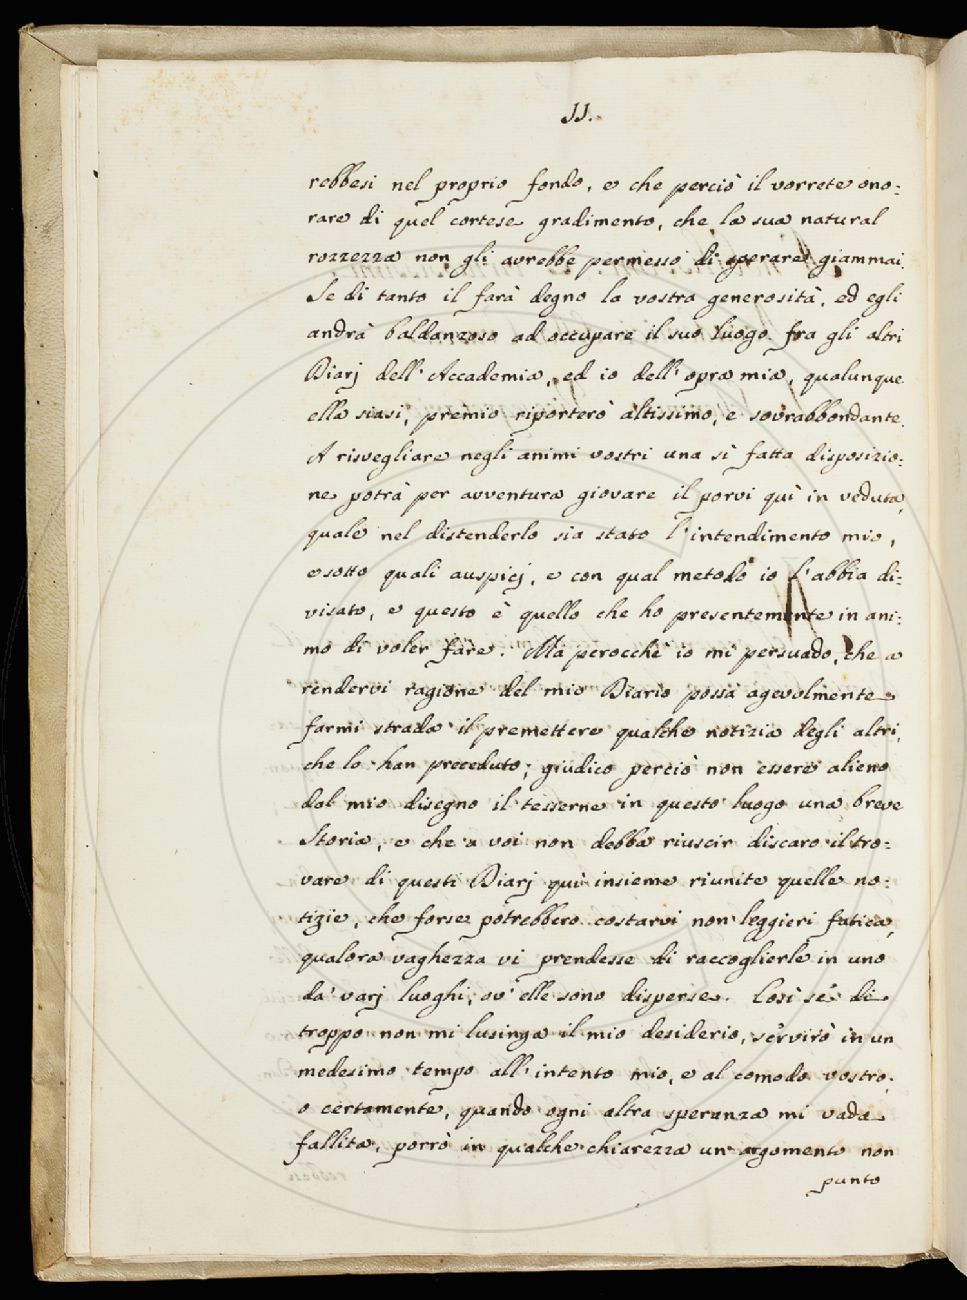 II.
rebbesi nel proprio fondo, e che perciò il vorrete ono=
rare di quel cortese gradimento, che la sua natural
rozzezza non gli avrebbe permesso di sperare giammai.
Se di tanto il farà degno la vostra generosità, ed egli
andrà baldanzoso ad occupare il suo luogo fra gli altri
Diarj dell' Accademia, ed io dell' opra mia, qualunque
ella siasi, premio riporterò altissimo, e sovrabbondante.
A risvegliare negli animi vostri una sì fatta disposizio=
ne potrà per avventura giovare il porvi quì in veduta,
quale nel distenderlo sia stato l'intendimento mio,
e sotto quali auspicj, e con qual metodo io l'abbia di=
visato, e questo è quello che ho presentemente in ani=
mo di voler fare. Ma perocchè io mi persuado, che a
rendervi ragione del mio Diario possa agevolmente
farmi strada il premettere qualche notizia degli altri,
che lo han preceduto; giudico perciò non essere alieno
dal mio disegno il tesserne in questo luogo una breve
Storia, e che a voi non debba riuscir discaro il tro=
vare di questi Diarj quì insieme riunite quelle no=
tizie, che forse potrebbero costarvi non leggieri fatica,
qualora vaghezza vi prendesse di raccoglierle in uno
da' varj luoghi, ov' elle sono disperse. Così se di
troppo non mi lusinga il mio desiderio, servirò in un
medesimo tempo all' intento mio, e al comodo vostro;
o certamente, quando ogni altra speranza mi vada
fallita, porrò in qualche chiarezza un argomento non
punto